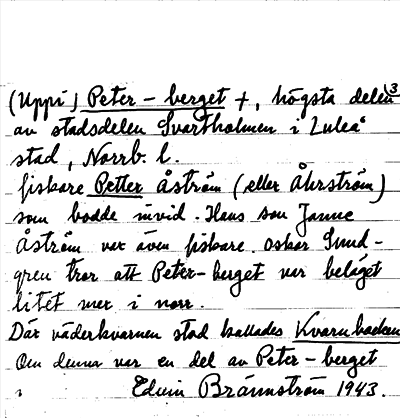 (Uppi) Peter-berget +, högsta delen 3
av stadsdelen Svartholmen i Luleå
stad, Norrb. l.
fiskare Petter Åström (eller Åhrström)
som bodde invid. Hans son Janne
Åström var även fiskare. Oskar Sund-
gren tror att Peter-berget var beläget
litet mer i norr.
Där väderkvarnen stod kallades Kvarnbacken
Om denna var en del av Peter-berget
Edvin Brännström 1943.